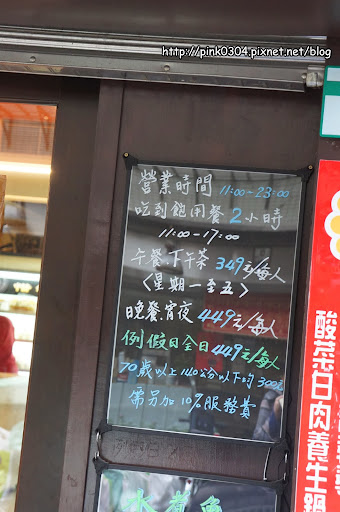 http://pink0304.pixnet.net/blog
營業時間 11:00-23:00
吃到飽用餐2小時
11:00-17:00
午餐.下午茶 349元/每人
<星期一至五>
晚餐.宵夜 449元/每人
例假日全日449元/每人
70歲以上140公分以下均300元
需另加10%服務費
酸菜白肉養生鍋